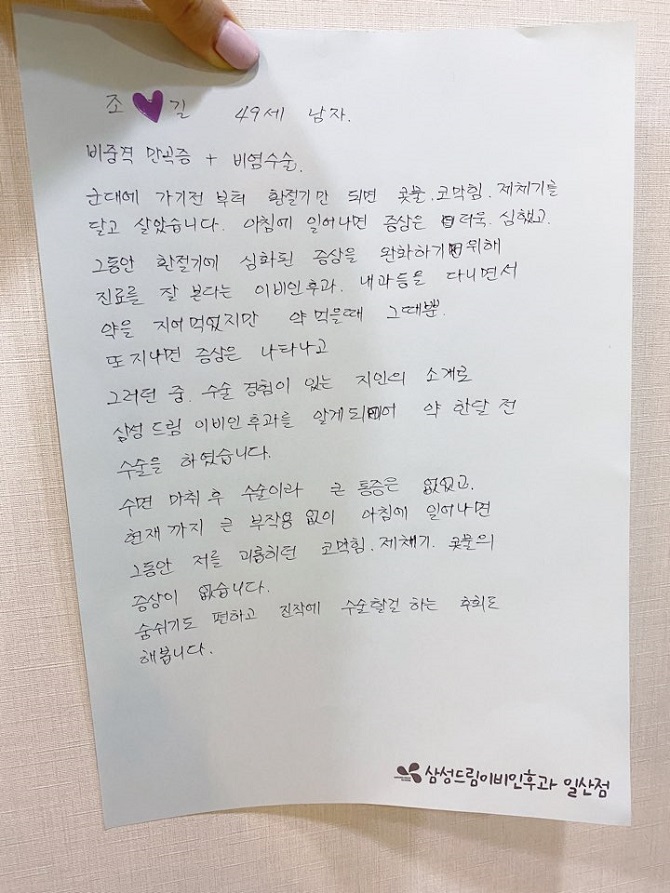 조 길 49세 남자.
비중격 만곡증 + 비염수술.
군대에 가기전 부터 환절기만 되면 콧물. 코막힘. 재채기를
달고 살았습니다. 아침에 일어나면 증상은 더욱. 심했고.
그동안 환절기에 심화된 증상을 완화하기 위해
진료를 잘 본다는 이비인후과. 내과등을 다니면서
약을 지어먹었지만 약먹을때 그때뿐.
또 지나면 증상은 나타나고
그러던 중. 수술 경험이 있는 지인의 소개로
삼성드림 이비인후과를 알게되어 약 한달 전
수술을 하였습니다.
수면 마취 후 수술이라 큰 통증은 없었고.
현재까지 큰 부작용 없이 아침에 일어나면
그동안 저를 괴롭히던 코막힘. 재채기. 콧물의
증상이 없습니다.
숨쉬기도 편하고 진작에 수술할걸 하는 후회도
해봅니다.
삼성드림이비인후과 일산점